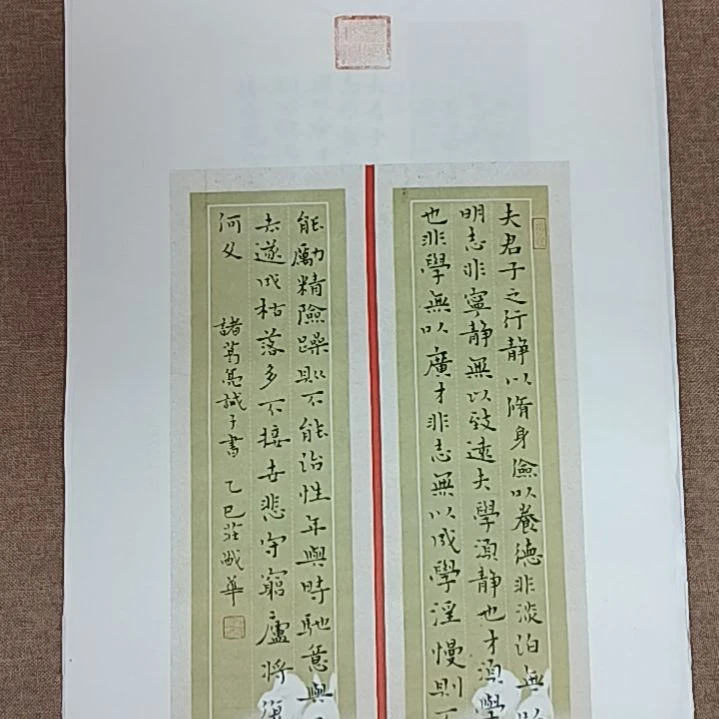 夫君子之行静以脩身儉以養德非淡泊無以
明志非寧静無以致遠夫學須静也才須學
也非學無以廣才非志無以成學淫慢則不
能勵精險躁則不能治性年與時馳意與
去遂成枯落多不接世悲守窮廬將復
何父
諸葛亮誡子書 乙巳莊戩華